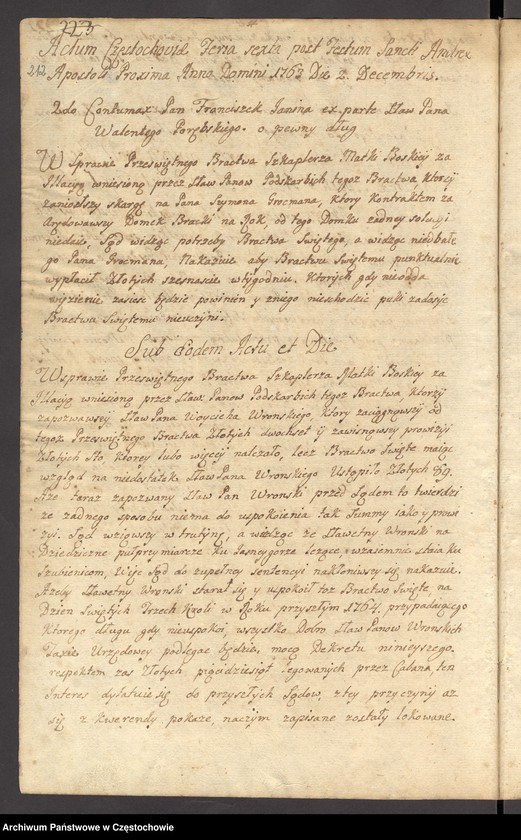 223
Actum Częstochoviæ Feria sexta post Festum Sancti Andreæ
212 Apostoli Proxima Anno Domini 1763 Die 2 Decembris.
2do Contumax Pan Franciszek Janina ex parte Sław Pana
Walentego Porębskiego. o pewny dług
W Sprawie Przeświętnego Bractwa Szkaplerza Matki Boskiey za
Instancyą wniesioną przez Sław Panow Podskarbich tegoz Bractwa, ktorzy
zanioslszy skargę na Pana Szymona Grocmana, ktory Kontraktem za
Arędowawszy Domek Bracki na Rok, od tego Domku zadney solucyi
niedaie, Sąd widząc potrzeby Bractwa Swiętego, a widząc niedbałe
go Pana Grocmana, Nakazuie aby Bractwu Swiętemu punktualnie
wypłacił Złotych szesnascie wtygodniu. Ktorych gdy nieodda
więzienie zasieść będzie powinien y zniego nieschodzic puki zadosyc
Bractwu Swiętemu nieuczyni.
Sub eodem Actu et Die
Wsprawie Przeświętnego Bractwa Szkaplerza Matki Boskiey za
wniesioną przez Sław: Panow Podskarbich tegoz Bractwa, ktorzy
zapozwawszy Sław Pana Woyciecha Wronskiego, ktory zaciągnąwszy od
tegoz Przeświętnego Bractwa Złotych dwochset y zawisnąwszy prowizyi
Złotych sto, ktorey lubo więcey nalezało, lecz Bractwo Swięte maiąc
wzgląd na niedostatek Sław Pana Wronskiego Ustąpiło Złotych
Aze taraz zapozwany Sław Pan Wronski przed Sądem to twierdzi
ze zadnego sposobu niema do uspokoienia tak Summy iako y prowi
zyi. Sąd wziąwszy w trutynę, a widząc ze Sławetny Wronski ma
Dziedziczne pułprzymiarze ku Jasneygorze lezące, wzaiemnie staia ku
Szubienicom, Więc Sąd do zupełney sentencyi nakłoniwszy się nakazuie.
Azeby Sławetny Wronski starał się y uspokoił toz Bractwo Swięte, na
Dzien Swiętych Trzech Kroli w Roku przyszłym 1764. przypadaiącego
Ktorego długu gdy nieuspokoi, wszystko Dobro Sław Panow Wronskich
Taxie Urzędowey podlegac będzie, mocą Dekretu ninieyszego.
respektem zas Złotych pięcidziesiąt legowanych przez Cabana ten
Interes dylatuie się do przyszłych Sądow, ztey przyczyny az
się z kwerendy pokaze, naczym zapisane zostały lokowane.
Archiwum Państwowe w Częstochowie